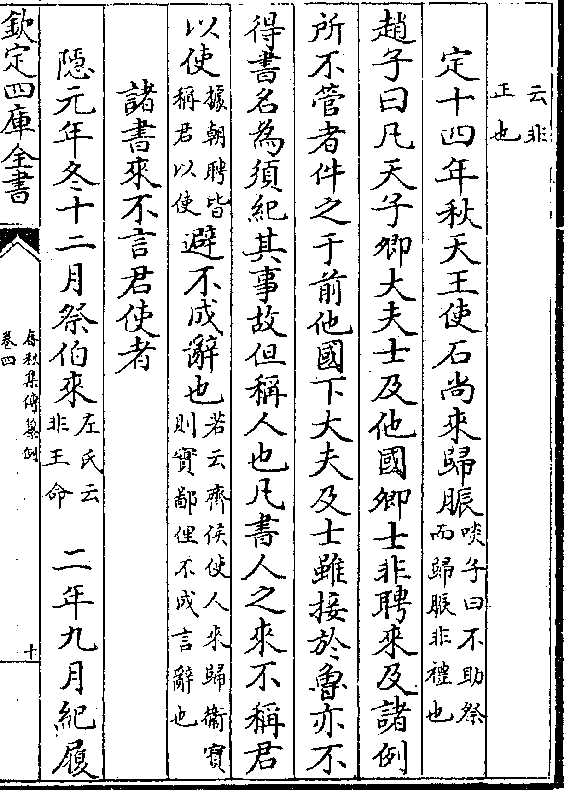 云非
正也
定十四年秋天王使石尚來歸脤啖子曰不助祭而歸脤非禮也
趙子曰凡天子卿大夫士及他國卿士非聘來及諸例
所不管者件之于前他國下大夫及士雖接於魯亦不
得書名為須紀其事故但稱人也凡書人之來不稱君
以使據朝聘皆稱君以使避不成辭也若云齊侯使人來歸衞寶則實鄙俚不成言辭也
諸書來不言君使者
隱元年冬十二月祭伯來左氏云非王命 二年九月紀履
欽定四庫全書
春秋集傳纂例
卷四
十